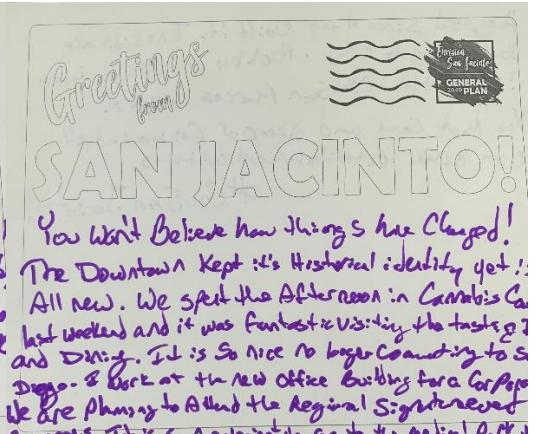 Greetings
from
Envision
San Jacinto
GENERAL
2040 PLAN
SAN JACINTO!
You Won't Believe how things have Changed!
The Downtown Kept it's Historical identity yet is
All new. We spent the Afternoon in Cannabis
last weekend and it was fantastic visiting the tasting
and Dining. It is So nice no longer Commuting to
Diego. I work at the new Office Building for a
We are Planning to Attend the Regional
It is to the Medical